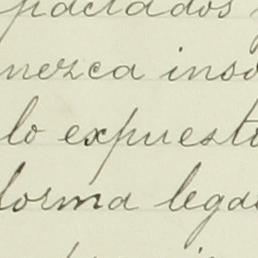 pactados
nezca inso
lo expuesto
forma lega